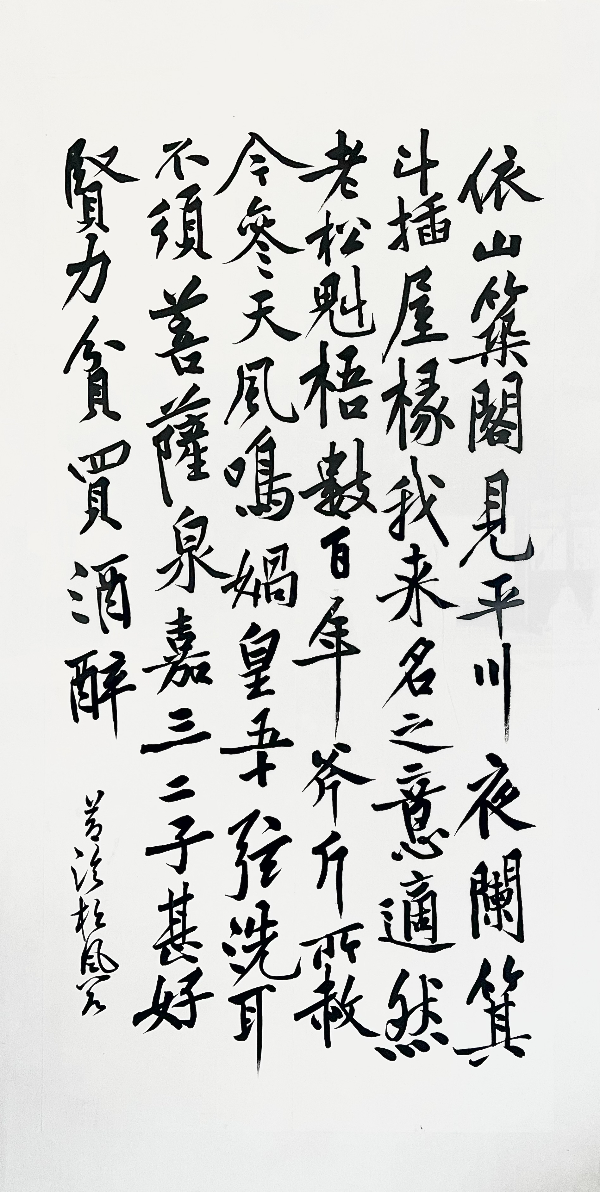 依山築閣見平川夜闌箕
斗插屋椽我来名之意適然
老松魁梧數百年斧斤所赦
今參天風鳴媧皇五十弦洗耳
不須菩薩泉嘉三二子甚好
賢力貧買酒醉
黃 松風閣